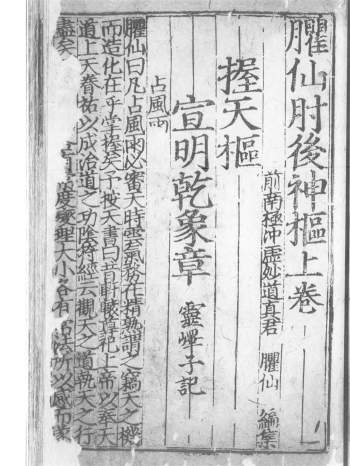 臞仙肘後神樞上卷
前南極沖虛妙道真君 臞仙 編集
握天樞
宣明乾象章 靈嶧子記
占風雨
臞仙曰凡占風雨必審天時雲氣務在精執謂之竊天之機
而造化在乎掌握矣子按天書曰昔軒轅尊祀上帝以奉天
道上天眷祐以成治道之功陰符經云觀天之道執天之行
盡矣 度變理大小各有 法所以感而